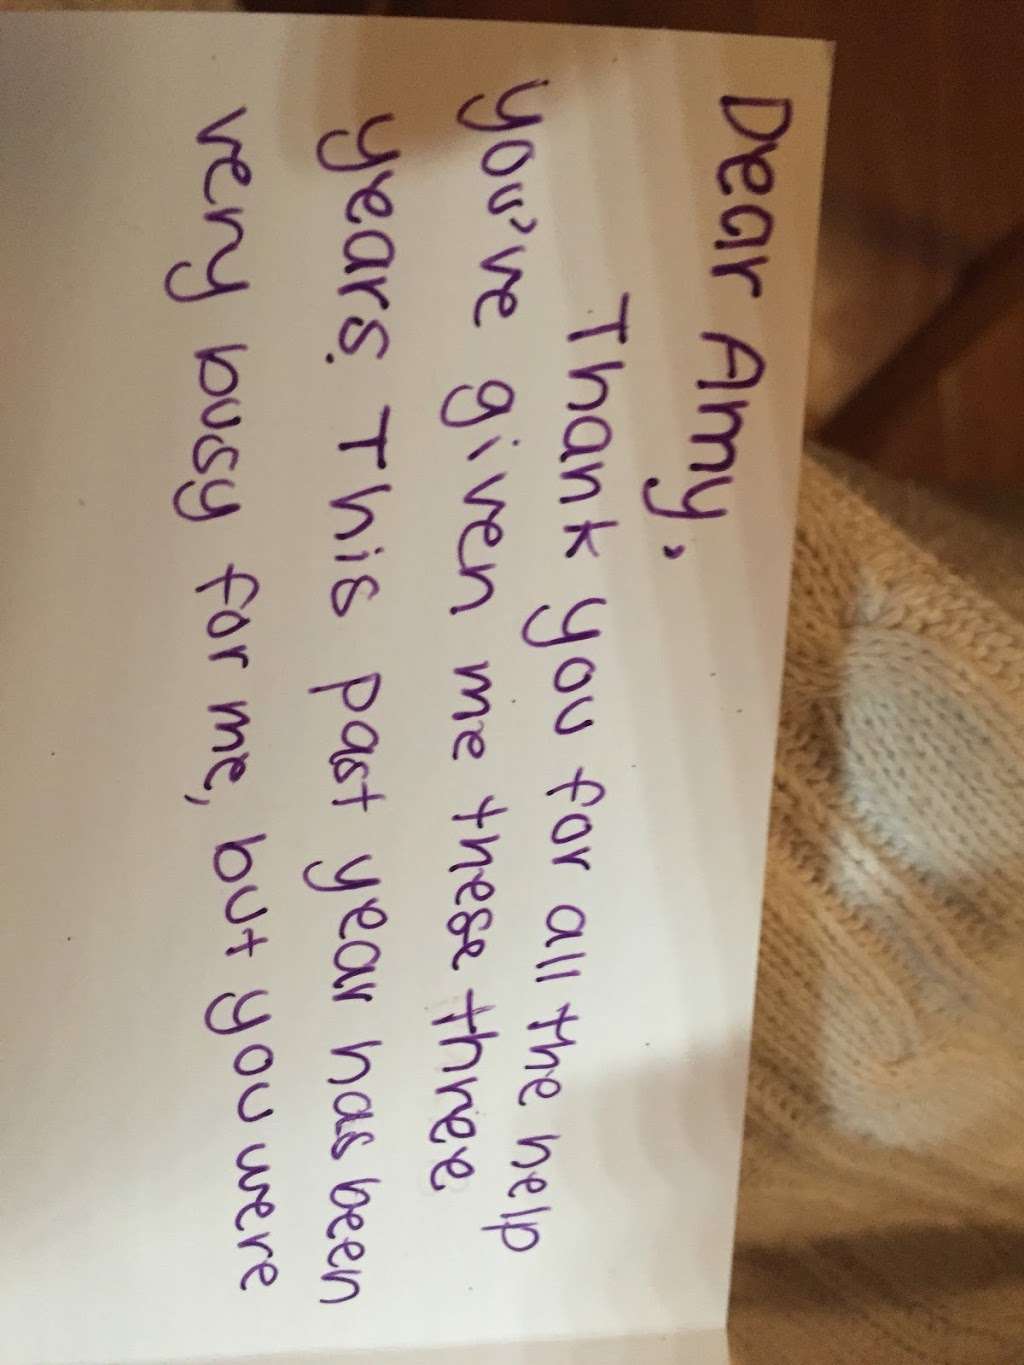 Dear Amy,
Thank you for all the help
you've given me these three
years. This past year has been
very busy for me, but you were